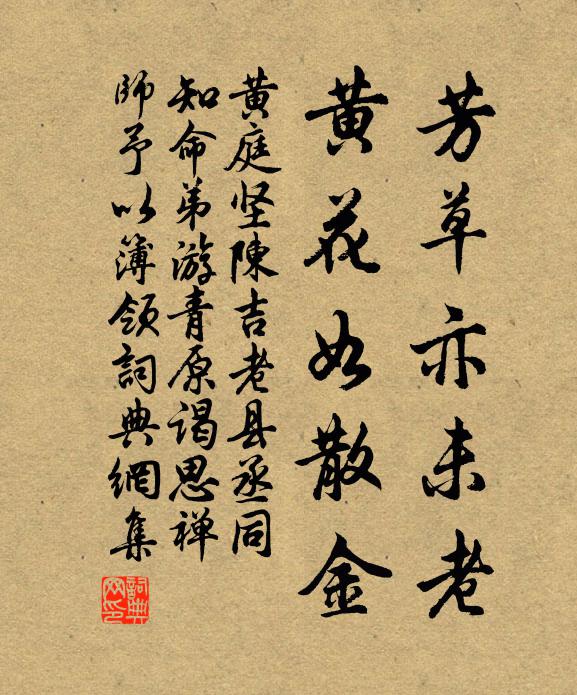 芳草亦未老
黄花如散金
黄庭坚陳吉老县丞同
知命弟游青原谒思禅
師予以簿领詞典網集